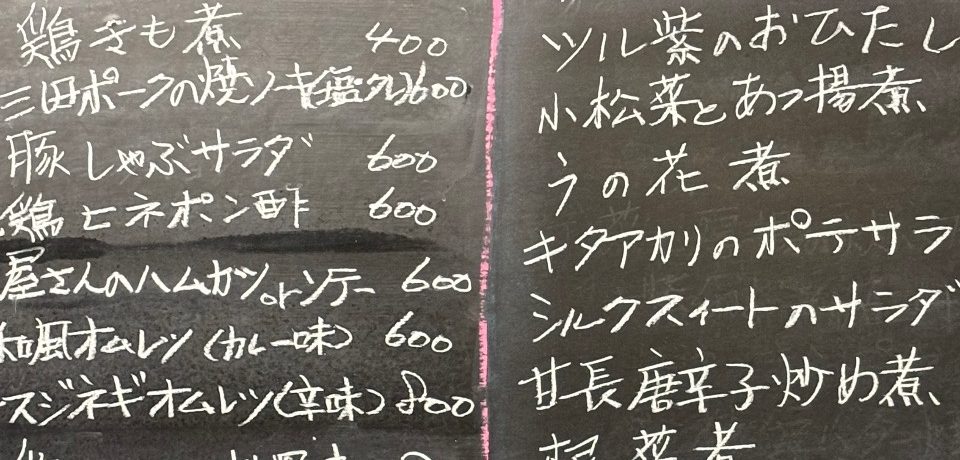 鶏きも煮 400
三田ポークの焼トンキ(塩タレ)600
豚しゃぶサラダ 600
鶏ヒネポン酢 600
屋さんのハムカツorソテー 600
和風オムレツ(カレー味) 600
スジネギオムレツ(辛味) 800
ツル紫のおひたし
小松菜とあつ揚煮
うの花煮
キタアカリのポテサラ
シルクスィートのサラダ
甘長唐辛子炒め煮